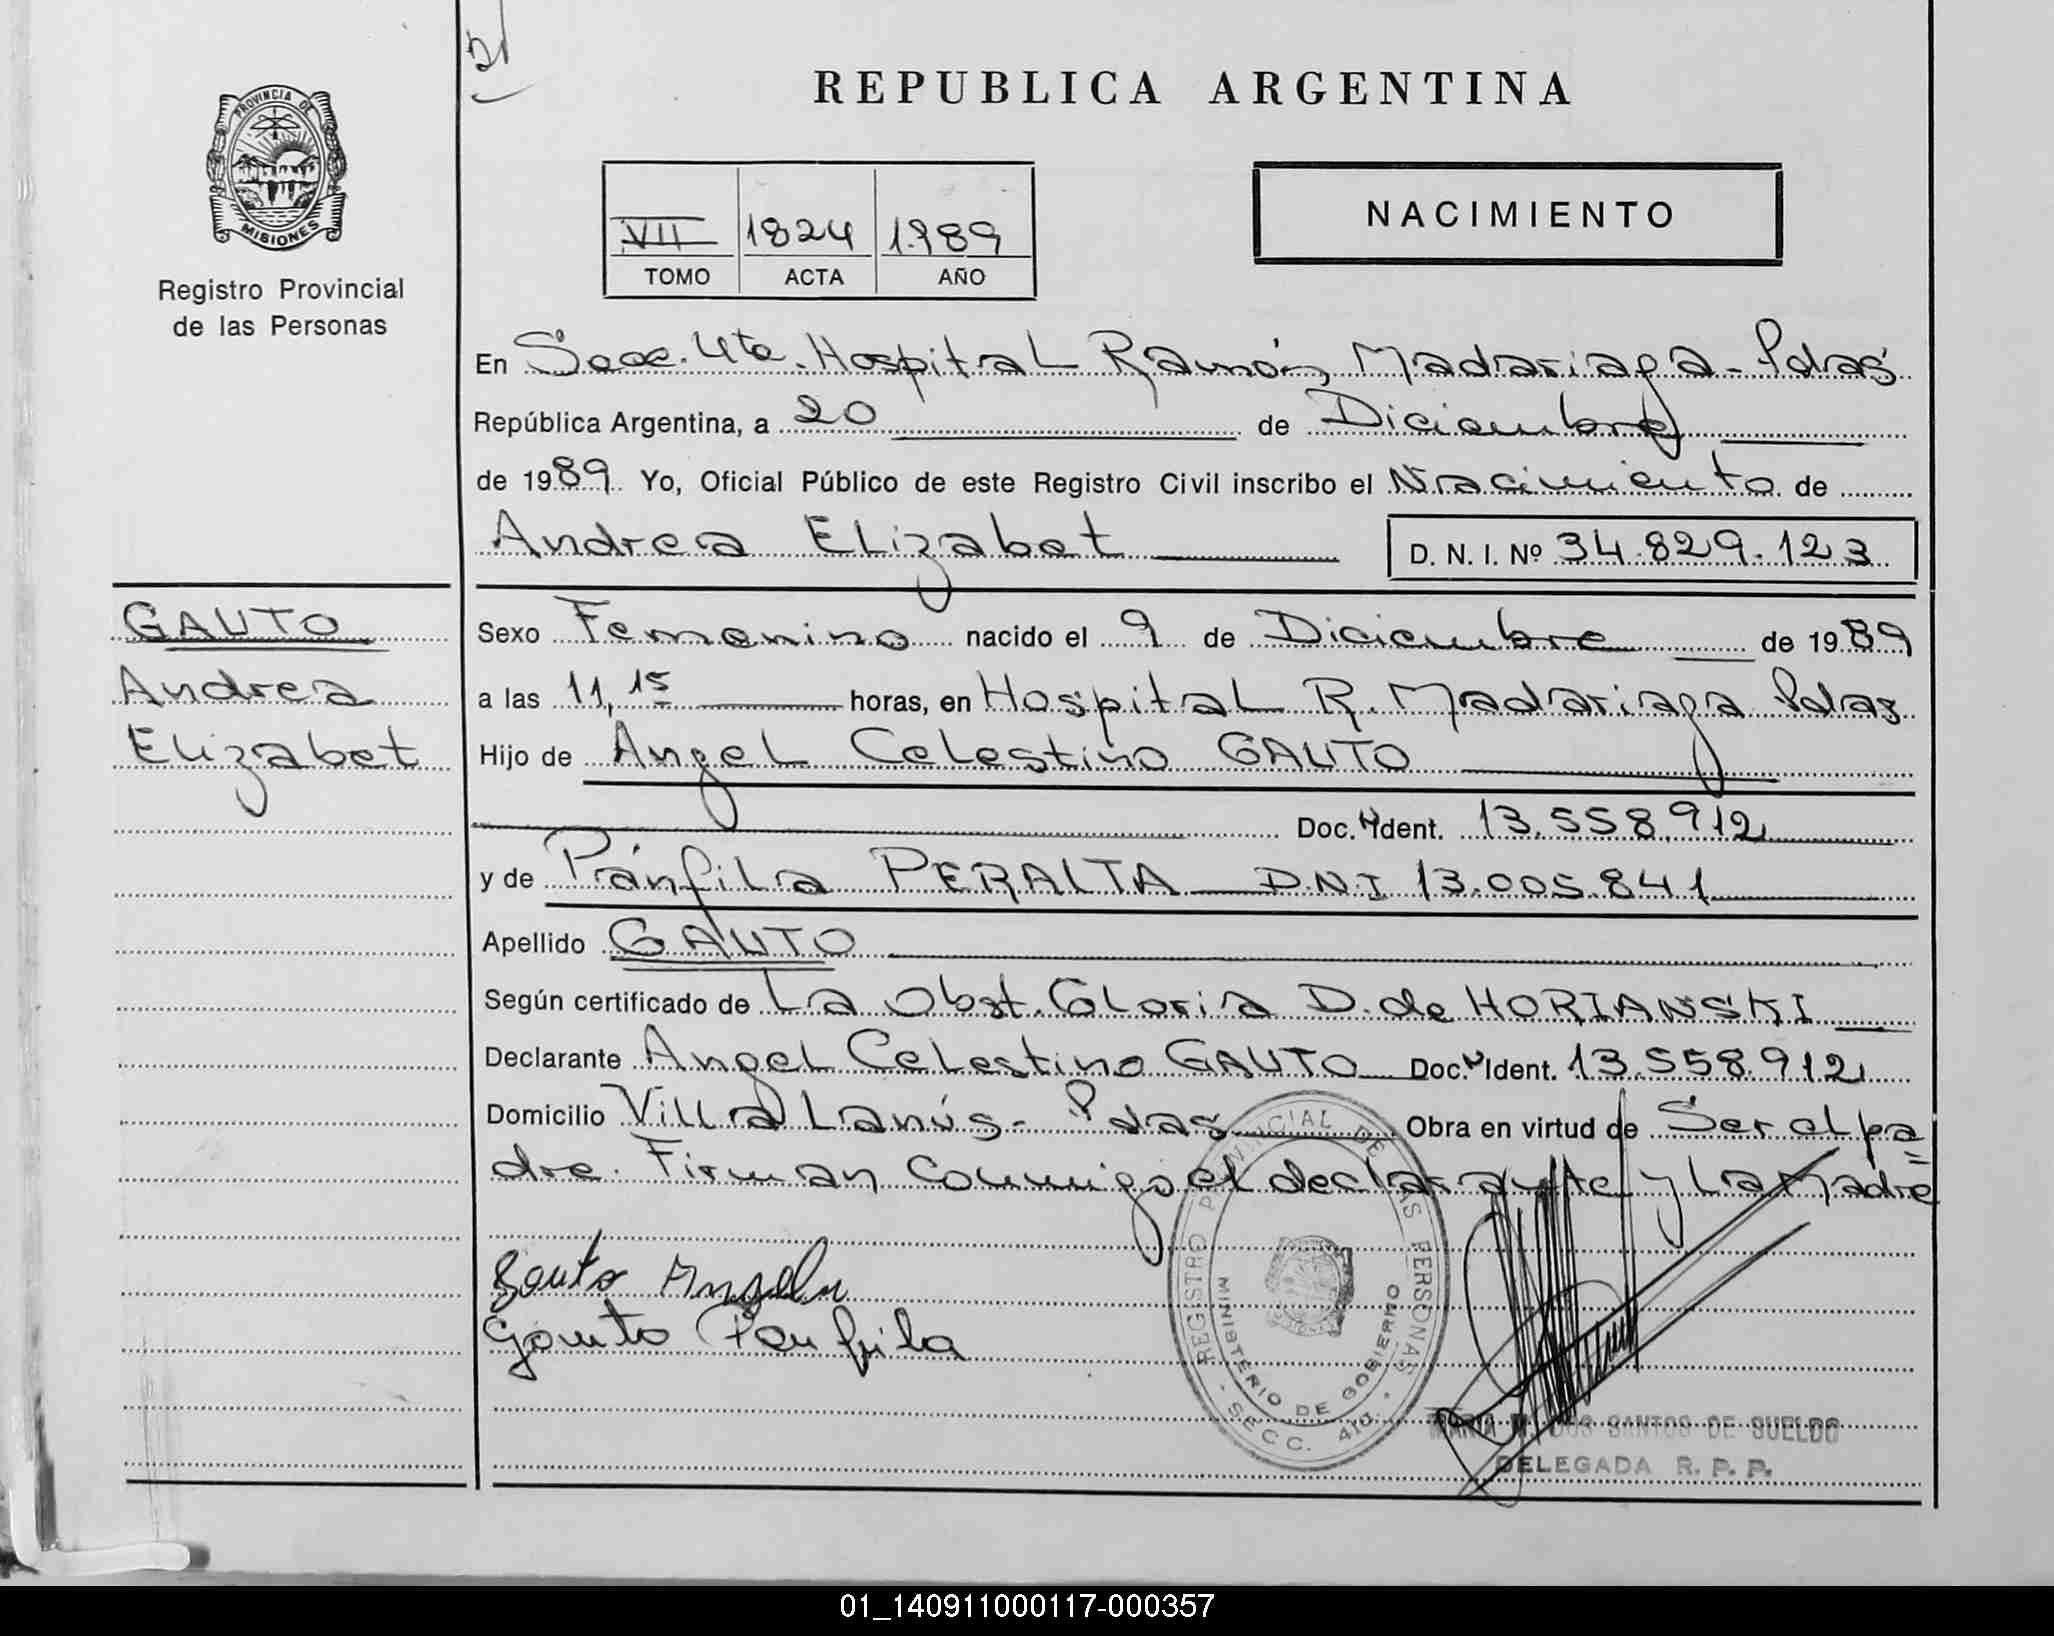 21
REPUBLICA ARGENTINA
PROVINCIA DE
MISIONES
Registro Provincial
de las Personas
VII 1824 1989
TOMO ACTA AÑO
NACIMIENTO
En Secc. 4ta. Hospital Ramón Madariaga - Pdas
República Argentina, a 20 de Diciembre
de 1989 Yo, Oficial Público de este Registro Civil inscribo el Nacimiento de
Andrea Elizabet D. N. I. Nº 34.829.123
GAUTO
Andrea
Elizabet
Sexo Femenino nacido el 9 de Diciembre de 1989
a las 11,15 horas, en Hospital R. Madariaga Pdas
Hijo de Angel Celestino GAUTO
Doc. Ident. 13.558.912
y de Pánfila PERALTA D.N.I 13.005.841
Apellido GAUTO
Según certificado de La Obst. Gloria D. de HORIANSKI
Declarante Angel Celestino GAUTO Doc. Ident. 13.558.912
Domicilio Villa Lanús - Pdas Obra en virtud de Ser el pa=
dre. Firman conmigo el declarante y La Madre
Gauto Angel
Gauto Panfila
REGISTRO PROVINCIAL DE LAS PERSONAS
MINISTERIO DE GOBIERNO
- SECC. 4ta. -
MARIA M. DOS SANTOS DE SUELDO
DELEGADA R. P. P.
01_140911000117-000357